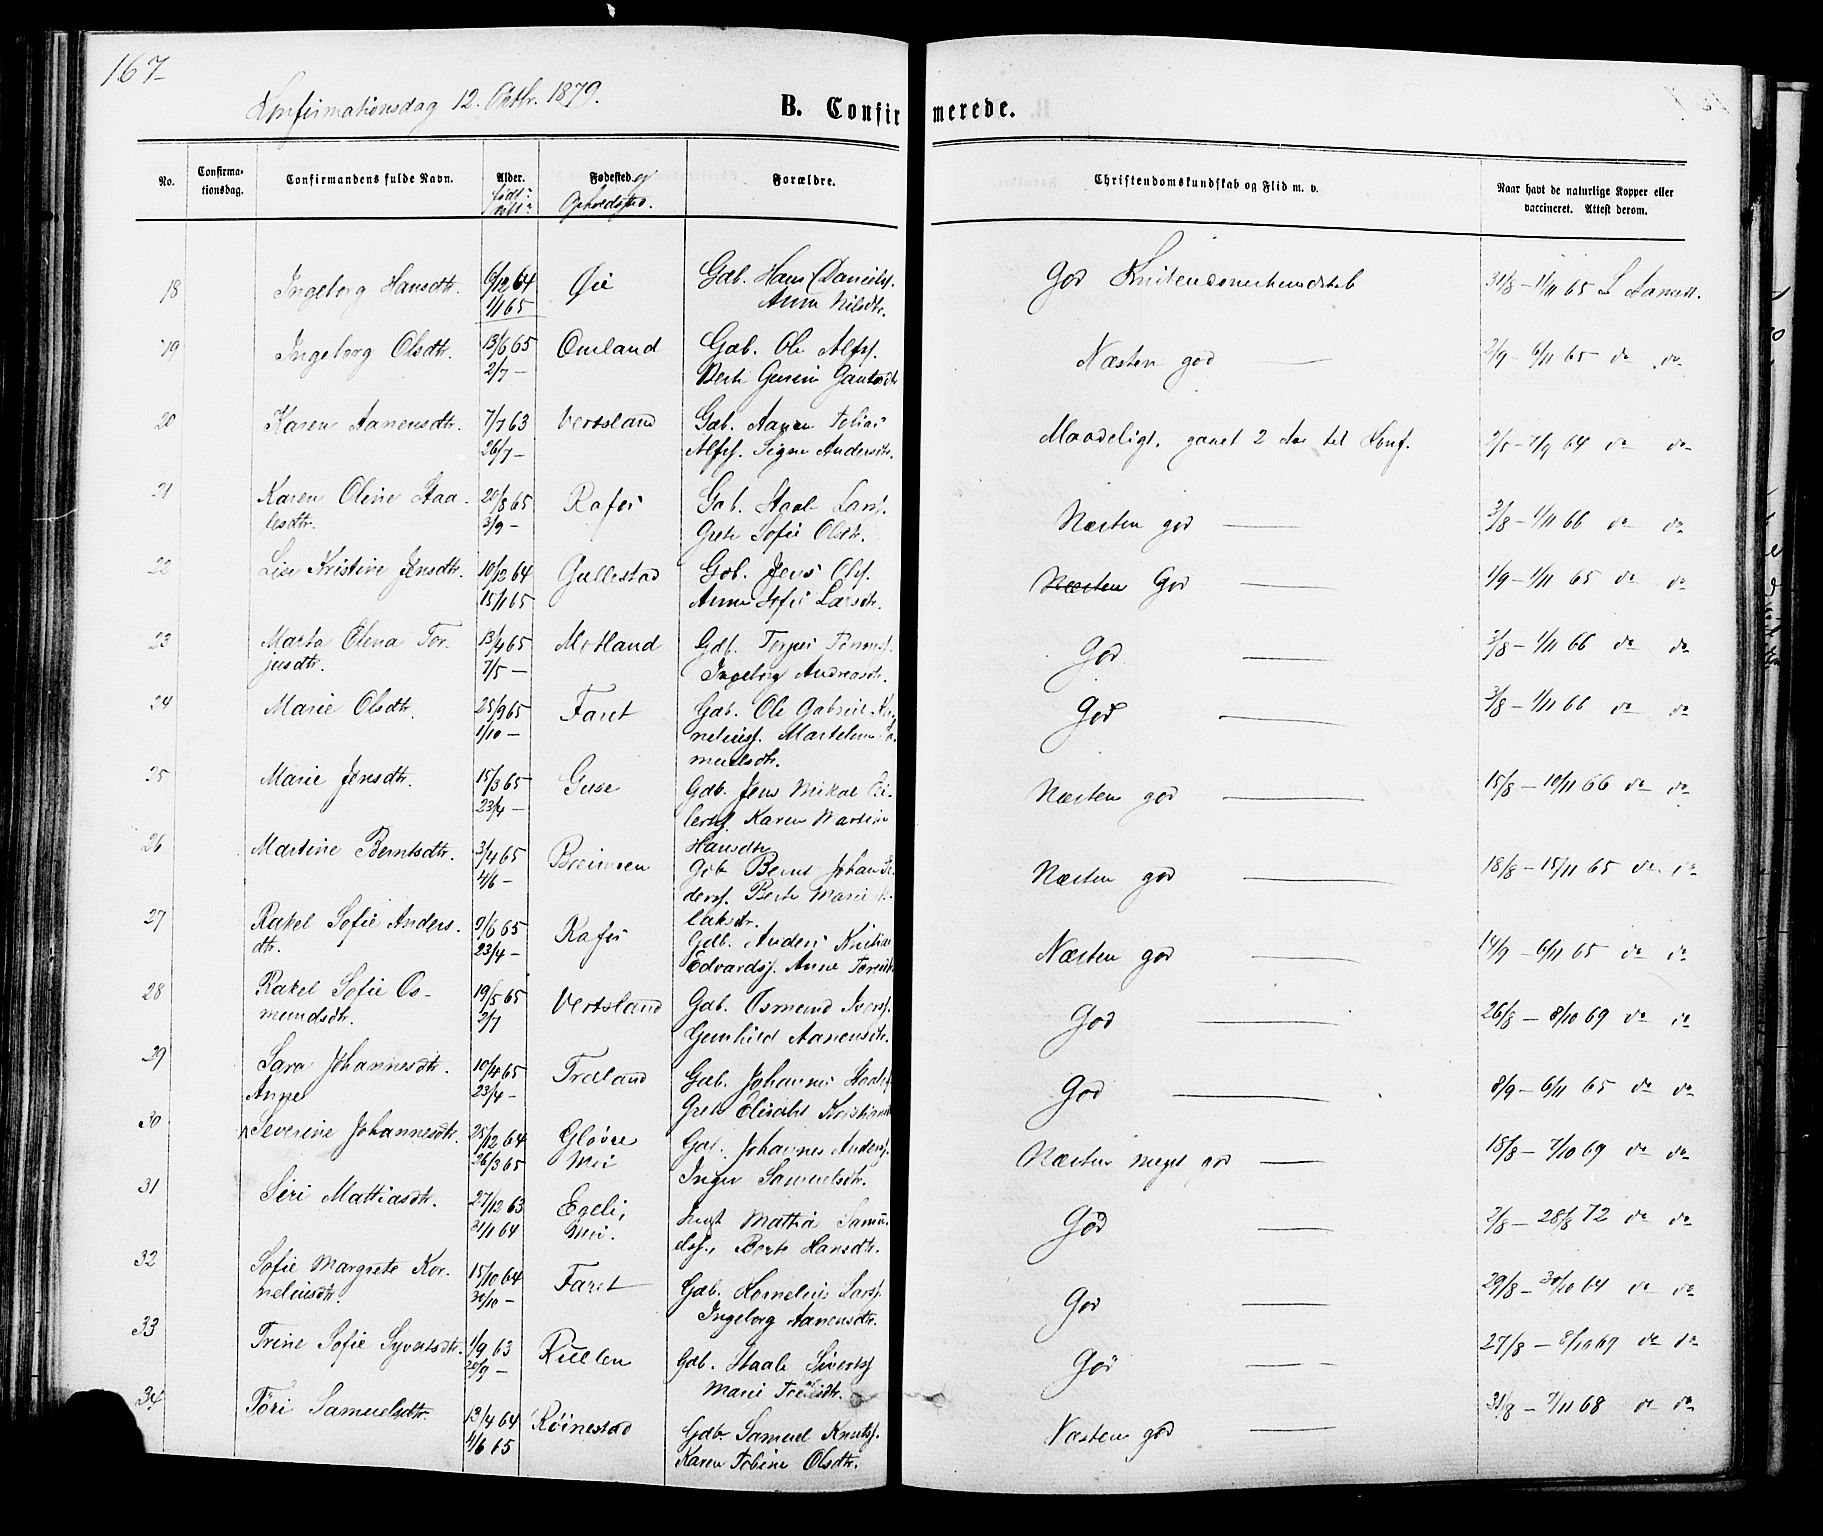 167
Konfirmationsdag 12. Octbr. 1879.
B. Confirmerede.
No.
Confirma-
tionsdag.
Confirmandens fulde Navn.
Alder.
født
Fødested og
Opholdssted.
Forældre.
Christendomskundskab og Flid m. v.
Naar havt de naturlige Kopper eller
vaccineret. Attest derom.
18 Ingeborg Hansdtr. 6/12 64 Øie Gdb. Hans Danielss. God Kristendomskundskab 31/8 – 1/11 65
1/1 65 Anna Nilsdtr.
19 Ingeborg Olsdtr. 13/6 65 Omland Gdb. Ole Alfs. Næsten god — 2/9 – 6/11 65 do do
2/7 – Berte
20 Karen Aanensdtr. 7/7 63 Vertsland Gdb. Aanen Tobias Maadeligt, gaaet 2 Aar til Konf. 64 do do
26/7 – Alfs. Signe Andersdtr.
21 Karen Oline Staa- 20/8 65 Rafos Gdb. Staale Lars. Næsten god — 3/8 – 1/11 66 do do
lesdtr. 3/9 – Grete Sofie Olsdtr.
22 Lise Kristine Jensdtr. 10/12 64 Gullestad Gdb. Jens Ols. Næsten God — 1/9 – 1/11 65 do do
15/1 65 Anne Sofie Larsdtr.
23 Marta Elena Tor- 13/4 65 Motland Gdb. Torjus God — 3/8 – 1/11 66 do do
jusdtr. 7/5 – Ingeborg Andreasdtr.
24 Marie Olsdtr. 25/9 65 Faret Gdb. Ole Gabriel Kor- God — 3/8 – 1/11 66 do do
1/10 – neliuss. Martelene Sa-
muelsdtr.
25 Marie Jensdtr. 15/3 65 Guse Gdb. Jens Mikal Ei- Næsten god — 15/8 – 10/11 66 do do
23/4 – lerts. Karen Martine
Hansdtr.
26 Martine Berntsdtr. 3/4 65 Gdb. Bernt Johan Pe- Næsten god — 18/8 – 15/11 65 do do
4/6 – ders. Berte Marie
27 Rakel Sofie Anders- 9/6 65 Rafos Gdb. Anders Kristian Næsten god — 14/9 – 6/11 65 do do
dtr. 23/4 – Edvards. Anne
28 Rakel Sofie Os- 19/5 65 Vertsland Gdb. Osmund Ivers. God — 26/8 – 8/10 69 do do
mundsdtr. 2/7 Gunhild Aanensdtr.
29 Sara Johannesdtr. 10/4 65 Træland Gdb. Johannes Staales. God — 8/9 – 6/11 65 do do
23/4 – Grete Elisabet
30 Anne
Severine Johannesdtr. 25/12 64 Gløvre Gdb. Johannes Anders. Næsten meget god — 18/8 – 7/10 69 do do
26/3 65 Moi Inger Samuelsdtr.
31 Siri Mattiasdtr. 27/12 63 Egeli, Mathias Samu- God — 2/8 – 28/8 72 do do
64 Moi. elss., Berte Hansdtr.
32 Sofie Margrete Kor- 15/10 64 Faret Gdb. Kornelius Lars. God — 29/8 – 30/10 64 do do
neliusdtr. 30/10 – Ingeborg Aanensdtr.
33 Trine Sofie Syvertsdtr. 1/9 63 Rullen Gdb. Staale Siverts. God — 27/8 – 8/10 69 do do
20/9 – Marie
34 Töri Samuelsdtr. 13/4 64 Röinestad Gdb. Samuel Knuts. Næsten god — 31/8 – 7/11 68 do do
4/6 65 Karen Tobine Olsdtr.